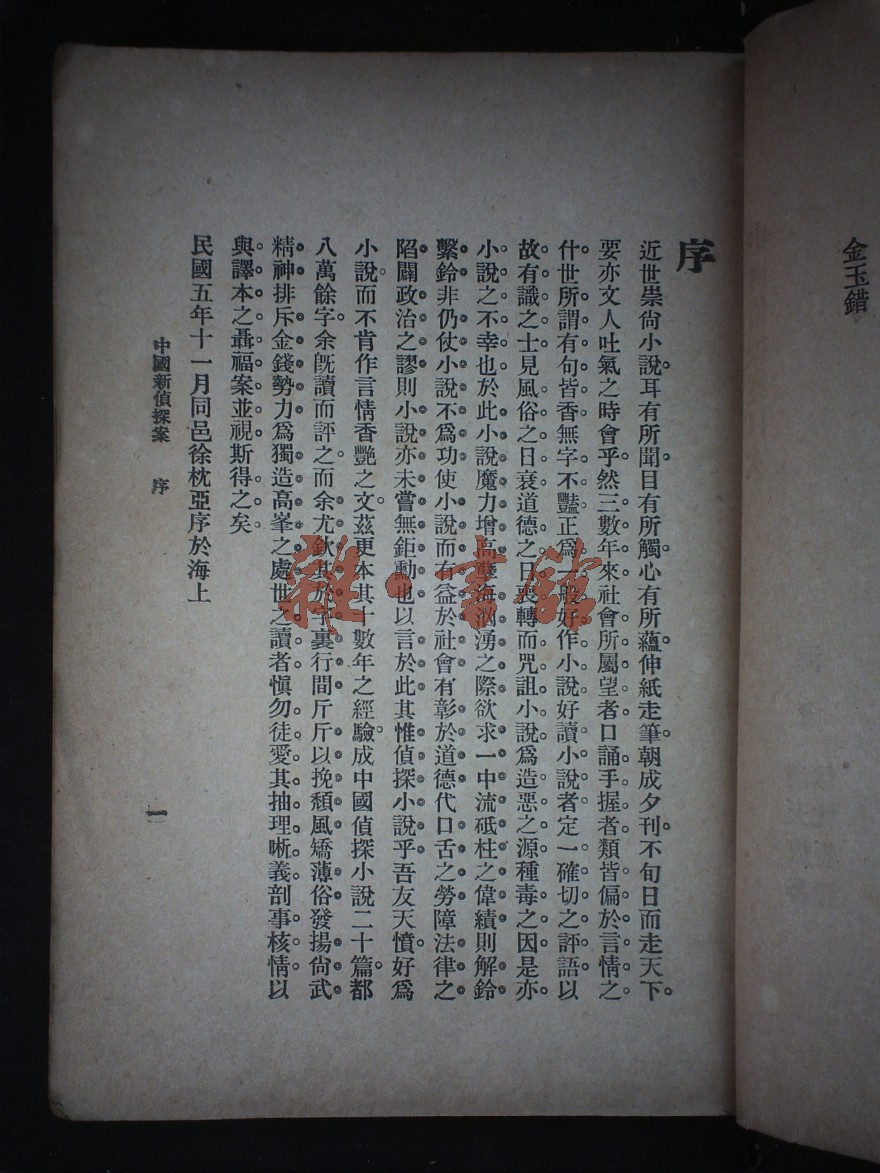 金玉錯
序
近世崇尙小說耳有所聞目有所觸心有所蘊伸紙走筆朝成夕刊不旬日而走天下
要亦文人吐氣之時會乎然三數年來社會所屬望者口誦手握者類皆偏於言情之
什世所謂有句皆香無字不豔正爲一般好作小說好讀小說者定一確切之評語以
故有識之士見風俗之日衰道德之日喪轉而咒詛小說爲造惡之源種毒之因是亦
小說之不幸也於此小說魔力增高孽海洶湧之際欲求一中流砥柱之偉績則解鈴
繫鈴非仍仗小說不爲功使小說而有益於社會有彰於道德代口舌之勞障法律之
陷闢政治之謬則小說亦未嘗無鉅勳也以言於此其惟偵探小說乎吾友天憤好爲
小說而不肯作言情香艷之文茲更本其十數年之經驗成中國偵探小說二十篇都
八萬餘字余旣讀而評之而余尤欽其於字裏行間斤斤以挽頹風矯薄俗發揚尙武
精神排斥金錢勢力爲獨造高峯之處世之讀者愼勿徒愛其抽理晰義剖事核情以
與譯本之聶福案並視斯得之矣
民國五年十一月同邑徐枕亞序於海上
中國新偵探案 序
一
雜·書館